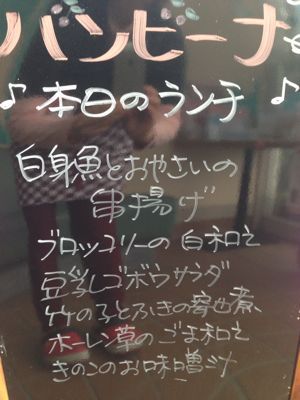 バンビーナ
♪本日のランチ♪
白身魚とおやさいの
串揚げ
ブロッコリーの白和え
豆乳ゴボウサラダ
竹の子とふきの
ホーレン草のごま和え
きのこのお味噌汁